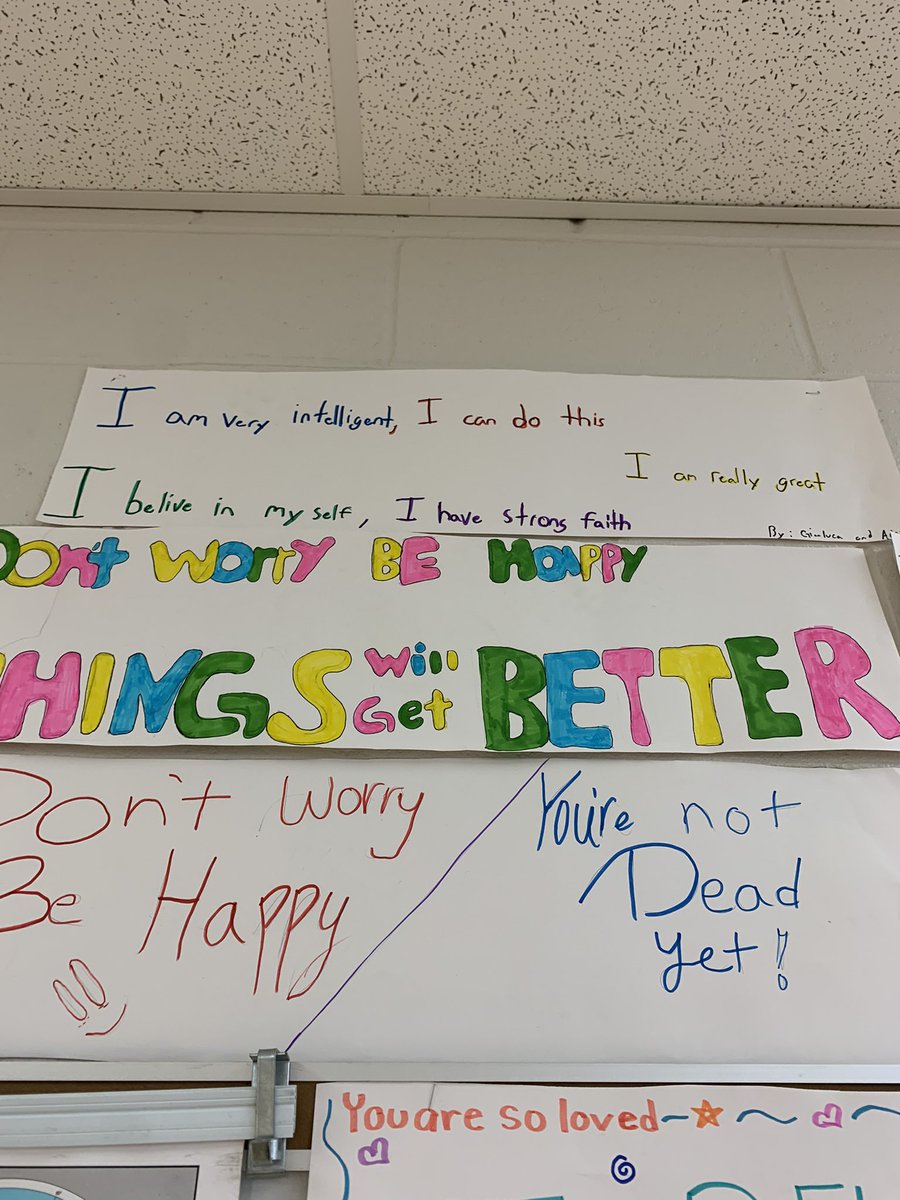 I am very intelligent, I can do this
I am really great
I belive in my self, I have strong faith
By: Gianluca and
Don't WorrY BE HAPPY
THINGS Will Get BETTER
Don't Worry
Be Happy
You're not
Dead
yet!
You are so loved